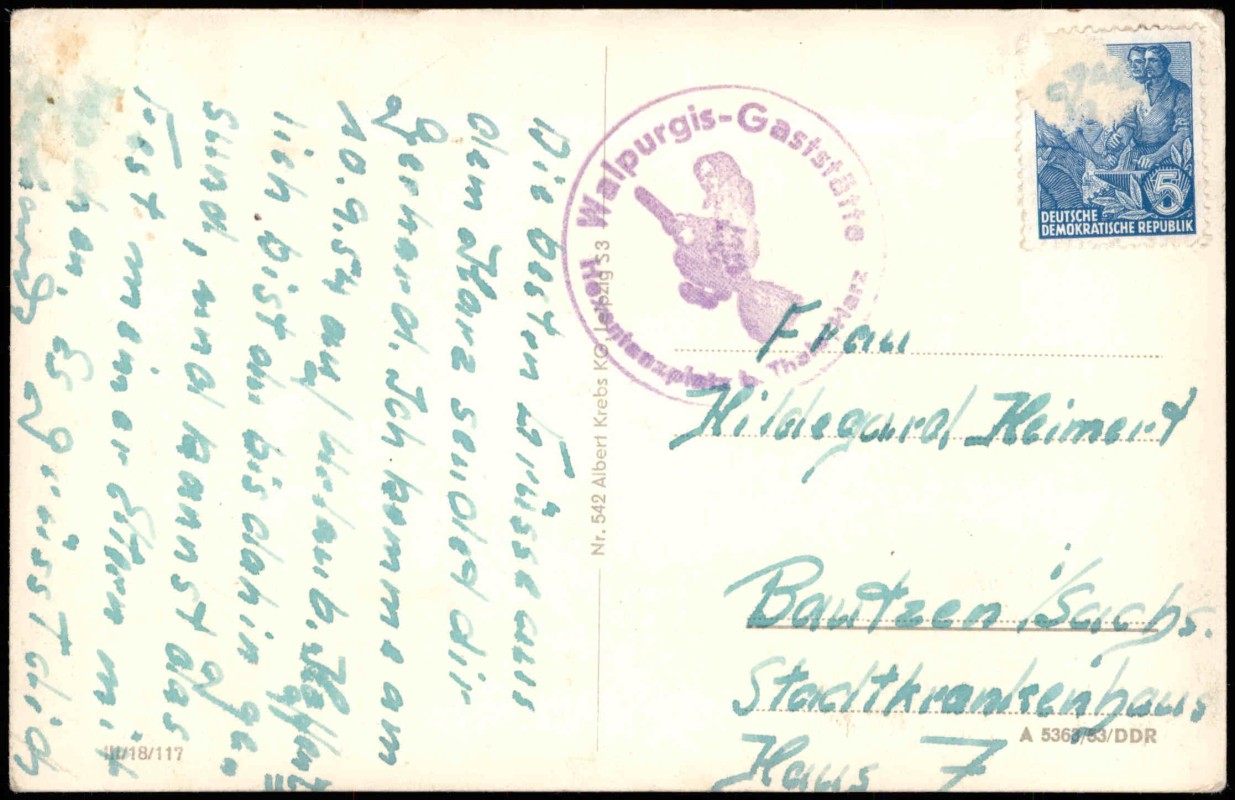 Die besten Grüsse aus
dem Harz sendet dir
Gerhard. Ich komme am
10.9.54 auf Urlaub. Hoffent
lich bist du bis dahin ge-
sund, und kannst das
Fest meiner Eltern mit
Es grüsst dich
Walpurgis-Gaststätte
Hexentanzplatz b. Thale/Harz
Nr. 542 Albert Krebs KG Leipzig S 3
5
DEUTSCHE
DEMOKRATISCHE REPUBLIK
Frau
Hildegard Heimert
Bautzen i/Sachs.
Stadtkrankenhaus
Haus 7
III/18/117
A 5363/53/DDR